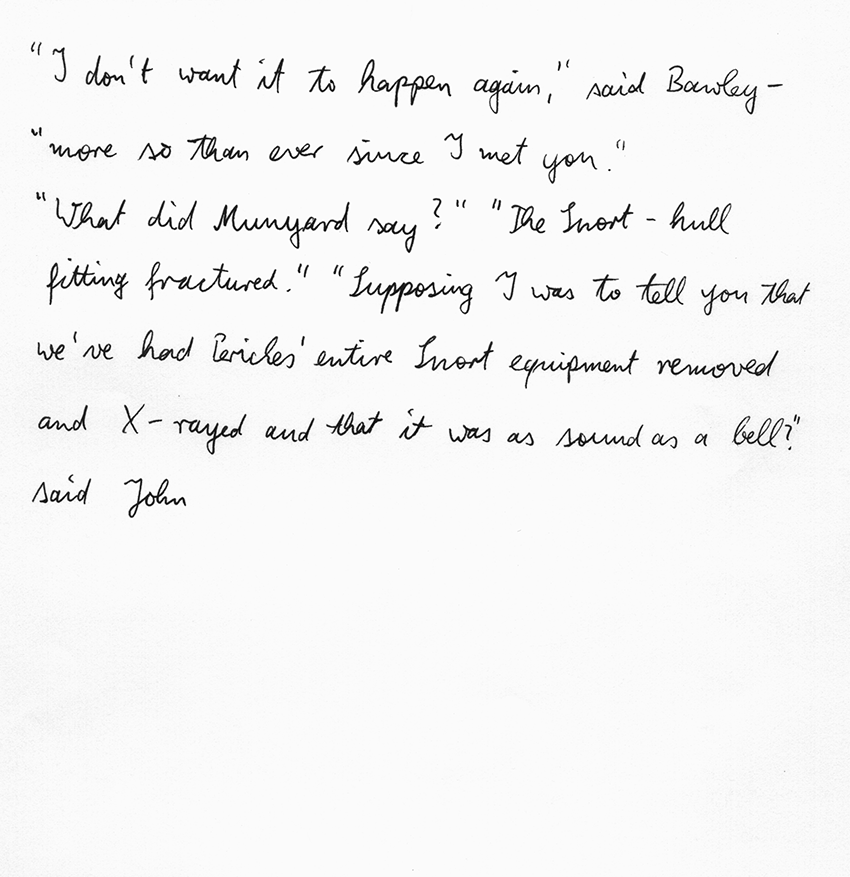 "I don't want it to happen again," said Bawley -
"more so than ever since I met you."
"What did Munyard say?" "The Snort - hull
fitting fractured." "Supposing I was to tell you that
we've had Pericles' entire Snort equipment removed
and X-rayed and that it was as sound as a bell?"
said John